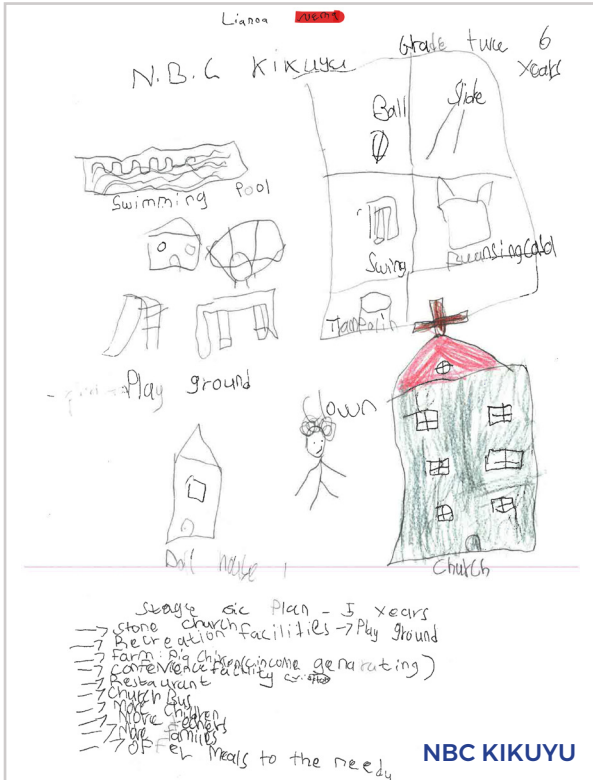 Lianoa
N.B.C KIKUYU
Grade two 6
years
Ball
Slide
Swimming Pool
Swing
Play ground
Clown
Doll house
Church
Plan - 5 years
Stone church
Recreation facilities → Play ground
Farm: Pig Chicken (income genarating)
Conference facility
Restaurant
Church Bus
More Children
More teachers
More families
offer Meals to the needy
NBC KIKUYU